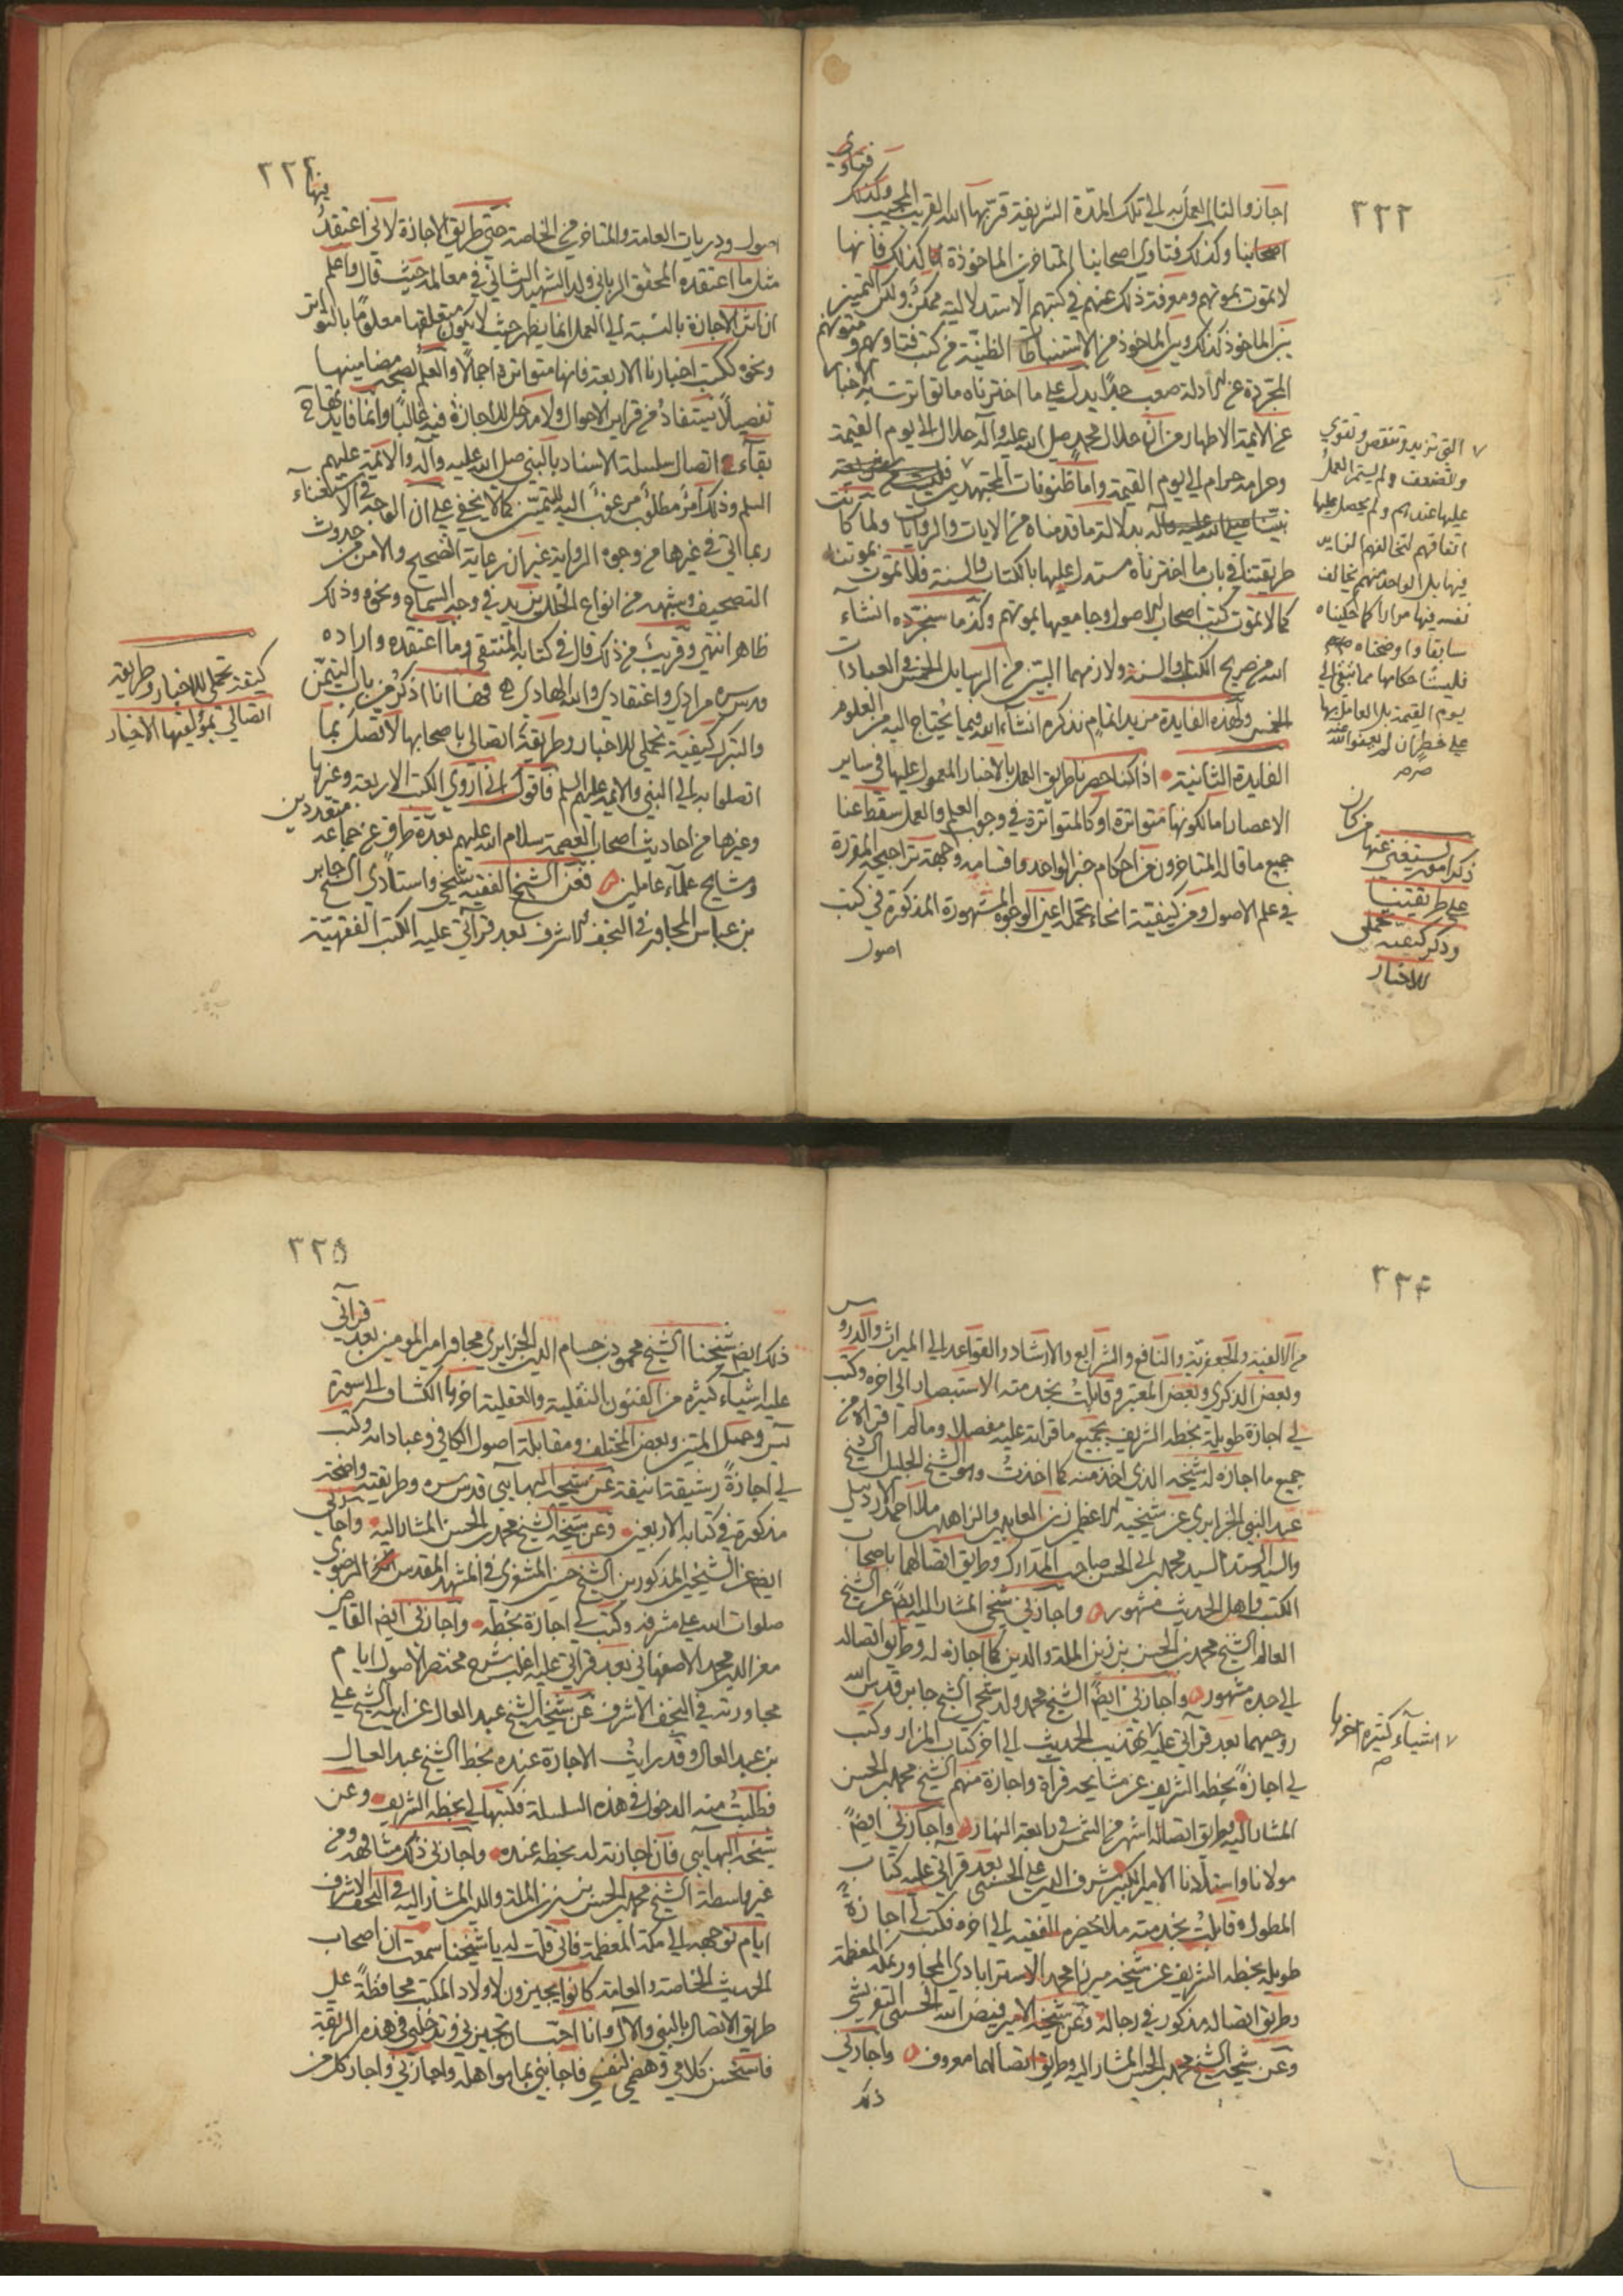 ٣٢٢
فتاوى
اجازوا لنا العمل به الى تلك المدة الشريفة قربها الله القريب المجيب وكذلك
اصحابنا وكذلك فتاوي اصحابنا المتاخرين الماخوذة كذلك فانها
لا تموت بموتهم ومعرفة ذلك عنهم في كتبهم الاستدلالية ممكن ولكن التمييز
بين الماخوذ كذلك وبين الماخوذ من الاستنباطات الظنية في كتب فتاويهم ومتونهم
المجردة عن الادلة صعب جدا يدل على ما اخترناه ما تواترت به الاخبار
عن الائمة الاطهار من ان حلال محمد صلى الله عليه وآله حلال الى يوم القيمة
وحرامه حرام الى يوم القيمة واما ظنونات المجتهدين فليست
بدلالة ما قدمناه من الايات والروايات ولما كانت
طريقتنا في باب ما اخترناه مستدل عليها بالكتاب والسنة فلا تموت بموتنا
كما لا تموت كتب اصحاب الاصول وجامعيها بموتهم وكذا ما سنجرده انشاء
الله من صريح الكتاب والسنة ولازمهما البين من الرسايل الخمس في العبادات
الخمس ولهذه الفايدة مزيد اتمام نذكره انشاء الله فيما يحتاج اليه من العلوم
الفايدة الثانية اذا كنا حصرنا طريق العمل بالاخبار المعمول عليها في ساير
الاعصار اما لكونها متواترة او كالمتواترة في وجوب العلم والعمل سقط عنا
جميع ما قاله المتاخرون عن احكام خبر الواحد واقسامه وجهة تراجيحه المقررة
في علم الاصول ومن كيفية انحاء تحمله اعني الوجوه المشهورة المذكورة في كتب
اصول
التي تزيد وتنقص وتقوى
وتضعف ولم يستمر العمل
عليها عندهم ولم يحصل عليها
اتفاقهم لتخالفهم الزايد
فيها بل الواحد منهم يخالف
نفسه فيها مرارا كما حكيناه
سابقا واوضحناه
فليست احكامها مما تبقى الى
يوم القيمة بل العامل بها
على خطر ان لم يعف الله عنه
ذكر امور يستغنى عنها
على طريقتنا
وذكر كيفية تحملي
للاخبار
٣٢٣
فيها
اصول ودريات العامة والمتاخرين من الخاصة حتى طريق الاجازة لاني اعتقد
مثل ما اعتقده المحقق الرباني ولد الشهيد الثاني في معالمه حيث قال واعلم
ان اثر الاجازة بالنسبة الى العمل انما يظهر حيث لا يكون متعلقها معلوما بالتواتر
ونحوه ككتب اخبارنا الاربعة فانها متواترة اجمالا والعلم بصحة مضامينها
تفصيلا يستفاد من قراين الاحوال ولا مدخل للاجازة فيه غالبا وانما فايدتها ح
بقاء اتصال سلسلة الاسناد بالنبي صلى الله عليه وآله والائمة عليهم
السلم وذلك امر مطلوب مرغوب اليه للتيمن كما لا يخفى على ان الوجه في الاستغناء
ربما اتى في غيرها من وجوه الرواية غير ان رعاية التصحيح والامن من حدوث
التصحيف وشبهه من انواع الخلل يزيد في وجه السماع ونحوه وذلك
ظاهر انتهى وقريب من ذلك قال في كتابه المنتقى وما اعتقده واراده
قدس سره مرادي واعتقادي والله الهادي فها انا اذكر من باب التيمن
والتبرك كيفية تحملي للاخبار وطريقة اتصالي باصحابها لاتصل بما
اتصلوا به الى النبي والائمة عليهم السلم فاقول اني اروي الكتب الاربعة وغيرها
وغيرها من احاديث اصحاب العصمة سلام الله عليهم بعدة طرق عن جماعة متعددين
ومشايخ علماء عاملين فعن الشيخ الفقيه شيخي واستادي الشيخ جابر
بن عباس المجاور في النجف الاشرف بعد قرائتي عليه الكتب الفقهية
كيفية تحملي للاخبار وطريقة
اتصالي بمؤلفيها الاخيار
٣٢٤
من الالفية والجعفرية والنافع والشرايع والارشاد والقواعد الى الميراث والدروس
وبعض الذكرى وبعض المعتبر وقابلت بخدمته الاستبصار الى اخره وكتب
لي اجازة طويلة بخطه الشريف بجميع ما قراته عليه مفصلا وما لم اقراه من
جميع ما اجازه له شيخه الذي اخذ منه كما اخذت وهو الشيخ الجليل الشيخ
عبد النبي الجزايري عن شيخيه الاعظمين زين العابدين والزاهدين ملا احمد الاردبيلي
والسيد السند السيد محمد بن ابي الحسن صاحب المدارك وطريق اتصالهما باصحاب
الكتب واهل الحديث مشهور واجازني شيخي المشار اليه ايضا عن الشيخ
العالم الشيخ محمد بن الحسن بن زين الملة والدين كما اجازه له وطريق اتصاله
الى جده مشهور واجازني ايضا الشيخ محمد ولد شيخي الشيخ جابر قدس الله
روحيهما بعد قرائتي عليه تهذيب الحديث الى اخر كتاب المزار وكتب
لي اجازة بخطه الشريف عن مشايخه قراءة واجازة منهم الشيخ محمد بن الحسن
المشار اليه وطريق اتصاله اشهر من الشمس في رابعة النهار واجازني ايضا
مولانا واستادنا الامير الكبير شرف الدين علي الحسني بعد قرائتي عليه كتاب
المطول وقابلت بخدمته من لا يحضره الفقيه الى اخره فكتب لي اجازة
طويلة بخطه الشريف عن شيخه ميرزا محمد الاسترابادي المجاور بمكة المعظمة
وطريق اتصاله مذكور في رجاله وعن شيخه الامير فيض الله الحسيني التفرشي
وعن شيخه الشيخ محمد بن الحسن المشار اليه وطريق اتصالهما معروف واجازني
ذلك
اشياء كثيرة اخرها
٣٢٥
ذلك ايضا شيخنا الشيخ محمود بن حسام الدين الجزايري مجاور امير المومنين بعد قرائتي
عليه اشياء كثيرة من الفنون النقلية والعقلية اخرها الكشاف الى سورة
يس وحبل المتين وبعض المختلف ومقابلة اصول الكافي وعباداته وكتب
لي اجازة رشيقة انيقة عن شيخه البهائي قدس سره وطريقته واضحة
مذكورة في كتابه الاربعين وعن شيخه الشيخ محمد بن الحسن المشار اليه واجازني
ايضا عن الشيخين المذكورين الشيخ حسن المشغري في المشهد المقدس الرضوي
صلوات الله على مشرفه وكتب لي اجازة بخطه واجازني ايضا القاضي
معز الدين محمد الاصفهاني بعد قرائتي عليه اغلب شرح مختصر الاصول ايام
مجاورته في النجف الاشرف عن شيخه الشيخ عبد العال عن ابيه الشيخ علي
بن عبد العال وقد رايت الاجازة عنده بخط الشيخ عبد العال
فطلبت منه الدخول في هذه السلسلة فكتبها لي بخطه الشريف وعن
شيخه البهائي فان اجازته له بخطه عنده واجازني ذلك مشافهة ومن
غير واسطة الشيخ محمد بن الحسن بن زين الملة والدين المشار اليه في النجف الاشرف
ايام توجهه الى مكة المعظمة فاني قلت له يا شيخنا سمعت ان اصحاب
الحديث الخاصة والعامة كانوا يجيزون لاولاد المكتب محافظة على
طريق الاتصال بالنبي والآل وانا احب ان تجيزني وتدخلني في هذه الربقة
فاستحسن كلامي وهضمي لنفسي فاجابني بما هو اهله واجازني واجاز كل من